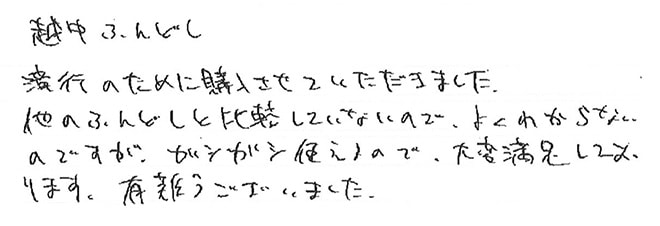 越中ふんどし
瀧行のために購入させていただきました。
他のふんどしと比較していないので、よくわからない
のですが、ガシガシ使えるので、大変満足してお
ります。有難うございました。